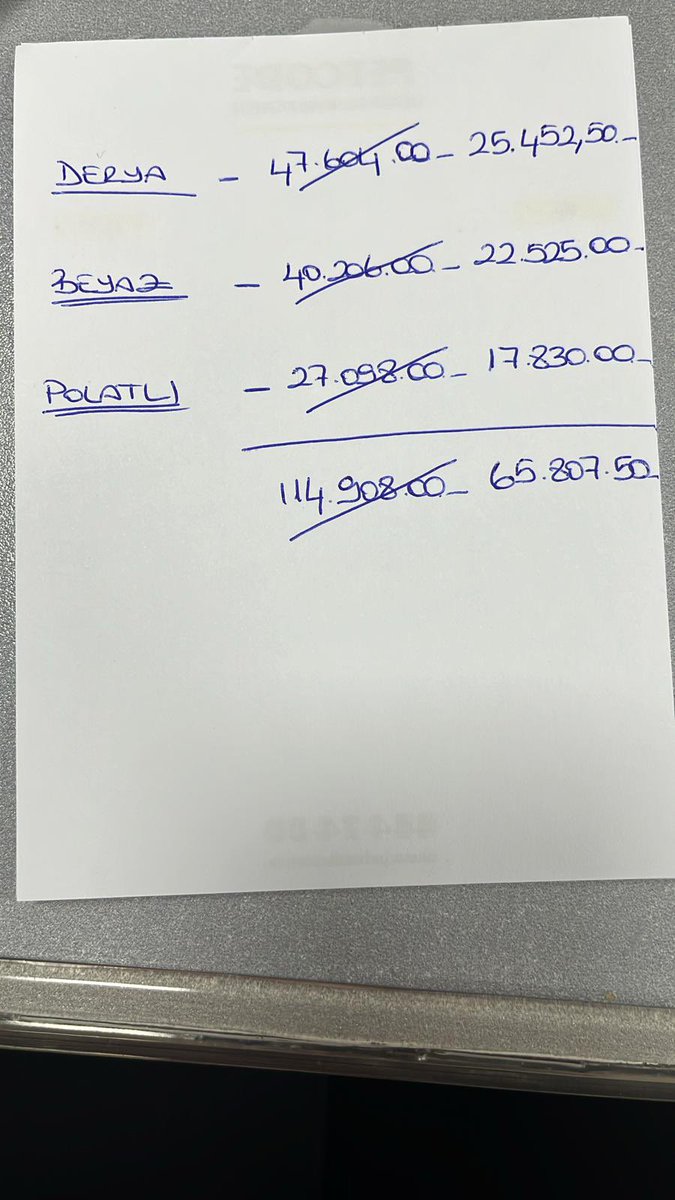 DERYA - 47.604.00- 25.452,50.-
BEYAZ - 40.206.00- 22.525.00-
POLATLI - 27.098.00- 17.830.00-
114.908.00- 65.807.50-